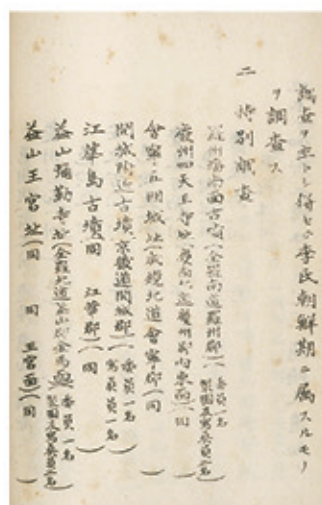 調査ヲ主トシ特ニ李氏朝鮮期ニ属スルモノ
ヲ調査ス
二 特別調査
羅州潘南面古墳(全羅南道羅州郡)(委員一名 製図及写真員一名)
慶州四天王寺址(慶尚北道慶州郡内東面)(同)
會寧五國城址(咸鏡北道會寧郡)(同)
開城附近古墳(京畿道開城郡)(委員一名 写真員一名)
江華島古墳(同 江華郡)(同)
益山彌勒寺址(全羅北道益山郡金馬面)(委員一名 製図及写真員一名)
益山王宮址(同 同 王宮面)(同)